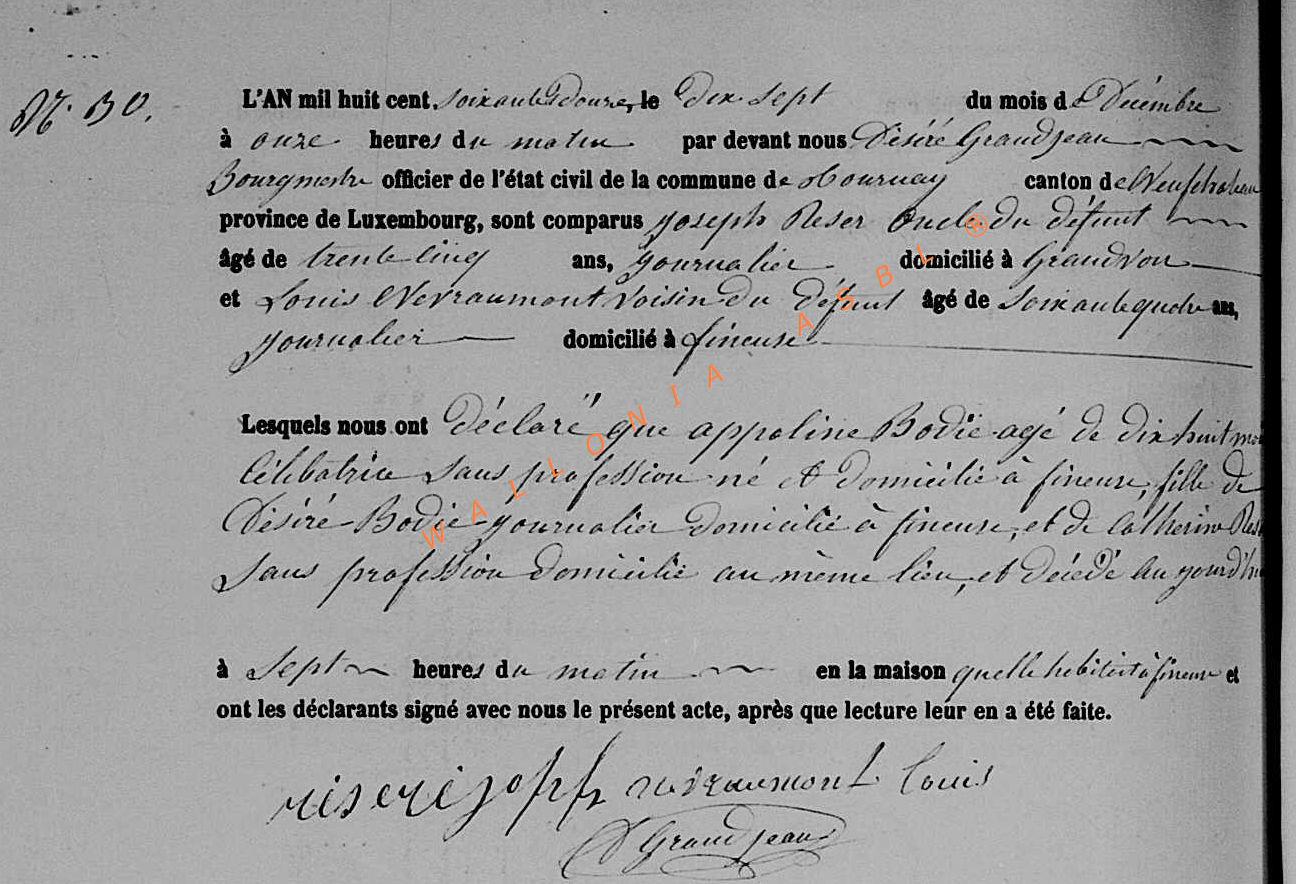 N°. 30.
L'AN mil huit cent soixante douze, le dix sept du mois de Décembre
à onze heures du matin par devant nous Désiré Grandjean
Bourgmestre officier de l'état civil de la commune de Tournay canton de Neufchateau
province de Luxembourg, sont comparus Joseph Reser Oncle du défunt
âgé de trente cinq ans, journalier domicilié à Grandvoir
et Louis Nevraumont Voisin du défunt âgé de soixante quatre ans,
journalier domicilié à fineuse
Lesquels nous ont déclaré que appoline Bodië agé de dix huit moi
Célibatrice sans profession né et domicilié à fineuse, fille de
Désiré Bodië journalier domicilié à fineuse, et de Catherine Res
sans profession domicilié au même lieu, et décédé au jourd'hu
à sept heures du matin en la maison quelle hebitait à fineuse et
ont les déclarants signé avec nous le présent acte, après que lecture leur en a été faite.
riseré joseph nevraumont Louis
D Grandjean
WALLONIA ASBL ®